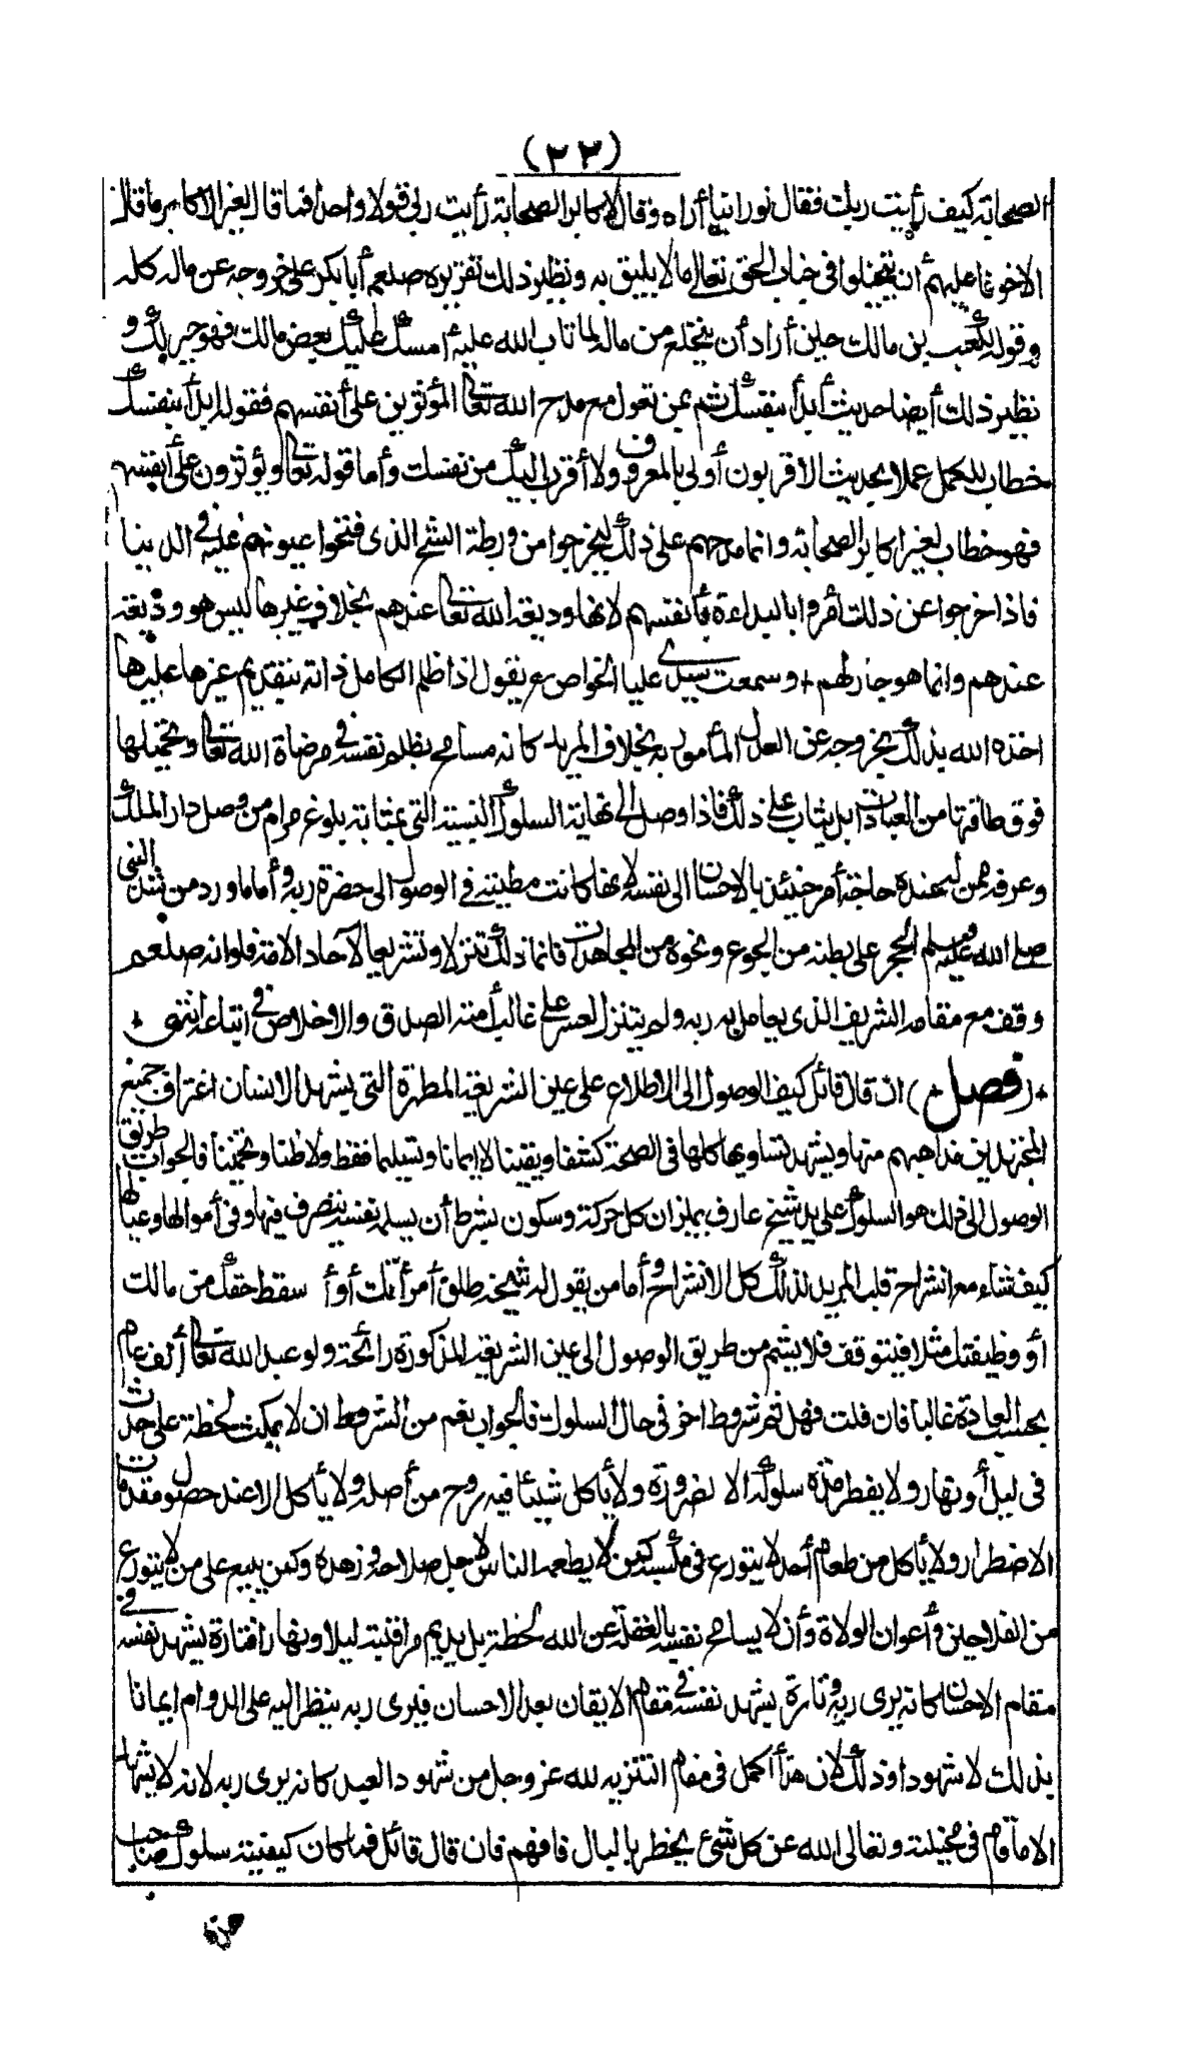 (٢٣)
الصحابة كيف رأيت ربك فقال نورانيا أراه وقال لاكابر الصحابة رأيت ربي قولا واحدا فما قال لغير الاكابر ما قال
الاخوفا عليهم أن يتخيلوا في جناب الحق تعالى ما لا يليق به ونظير ذلك تقريره صلعم أبا بكر على خروجه عن ماله كله
وقوله لكعب بن مالك حين أراد أن ينخلع من ماله لما تاب الله عليه أمسك عليك بعض مالك فهو خير لك و
نظير ذلك أيضا حديث أبدأ بنفسك ثم بمن تعول مع مدح الله تعالى المؤثرين على أنفسهم فقوله ابدأ بنفسك
خطاب للكمل عملا بحديث الاقربون أولى بالمعروف ولا أقرب اليك من نفسك وأما قوله تعالى ويؤثرون على أنفسهم
فهو خطاب لغير اكابر الصحابة وانما مدحهم على ذلك ليخرجوا من ورطة الشح الذي فتحوا عيونهم عليه في الدنيا
فاذا خرجوا عن ذلك أمروا بالبداءة بأنفسهم لانها وديعة الله تعالى عندهم بخلاف غيرها ليس هو وديعة
عندهم وانما هو جار لهم + وسمعت سيدي عليا الخواص رح يقول اذا ظلم الكامل ذاته بتقديم غيرها عليها
اخذه الله بذلك لخروجه عن العدل المأمور به بخلاف المريد كانه مسامح بظلم نفسه في مرضاة الله تعالى وتحميلها
فوق طاقتها من العبادات بل يثاب على ذلك فاذا وصل الى نهاية السلوك النسبية التي بمثابة بلوغ مرام من وصل دار الملك
وعرفه ممن له عنده حاجة أمر حينئذ بالاحسان الى نفسه لانها كانت مطيته في الوصول الى حضرة ربه وأما ما ورد من شد النبي
صلى الله عليه وسلم الحجر على بطنه من الجوع ونحوه من المجاهدات فانما ذلك تنزلا وتشريعا لآحاد الامة فلو انه صلعم
وقف مع مقامه الشريف الذي يعامل به ربه ولم يتنزل لعسر على غالب أمته الصدق والاخلاص في اتباعه انتهى +
+ (فصل +) ان قال قائل كيف الوصول الى الاطلاع على عين الشريعة المطهرة التي يشهد الانسان اغتراف جميع
المجتهدين مذاهبهم منها ويشهد تساويها كلها في الصحة كشفا ويقينا لا ايمانا وتسليما فقط ولا ظنا وتخمينا فالجواب طريق
الوصول الى ذلك هو السلوك على يد شيخ عارف بميزان كل حركة وسكون بشرط أن يسلمه نفسه يتصرف فيها وفي أموالها وعيالها
كيف شاء مع انشراح قلب المريد لذلك كل الانشراح وأما من يقول له شيخه طلق أمرأتك أو أ سقط حقك من مالك
أو وظيفتك مثلا فيتوقف فلا يشم من طريق الوصول الى عين الشريعة المذكورة رائحة ولو عبد الله تعالى ألف عام
بحسب العادة غالبا فان قلت فهل ثم شروط اخر في حال السلوك فالجواب نعم من الشروط ان لا يمكث لحظة على حدث
في ليل أو نهار ولا يفطر مدة سلوكه الا لضرورة ولا يأكل شيئا فيه روح من أصله ولا يأكل الا عند حصول مقدمات
الاضطرار ولا يأكل من طعام أحد لا يتورع في مكسبه كمن لا يطعمه الناس لاجل صلاحه وزهده وكمن يبيع على من لا يتورع
من الفلاحين وأعوان الولاة وأن لا يسامح نفسه بالغفلة عن الله لحظة بل يديم مراقبته ليلا ونهارا فتارة يشهد نفسه في
مقام الاحسان كانه يرى ربه وتارة يشهد نفسه في مقام الايقان بعد الاحسان فيرى ربه ينظر اليه على الدوام ايمانا
بذلك لا شهودا وذلك لان هذا أكمل في مقام التنزيه لله عز وجل من شهود العبد كانه يرى ربه لانه لا يشهد
الا ما قام في مخيلته وتعالى الله عن كل شئ يخطر بالبال فافهم فان قال قائل فما كان كيفية سلوك صاحب